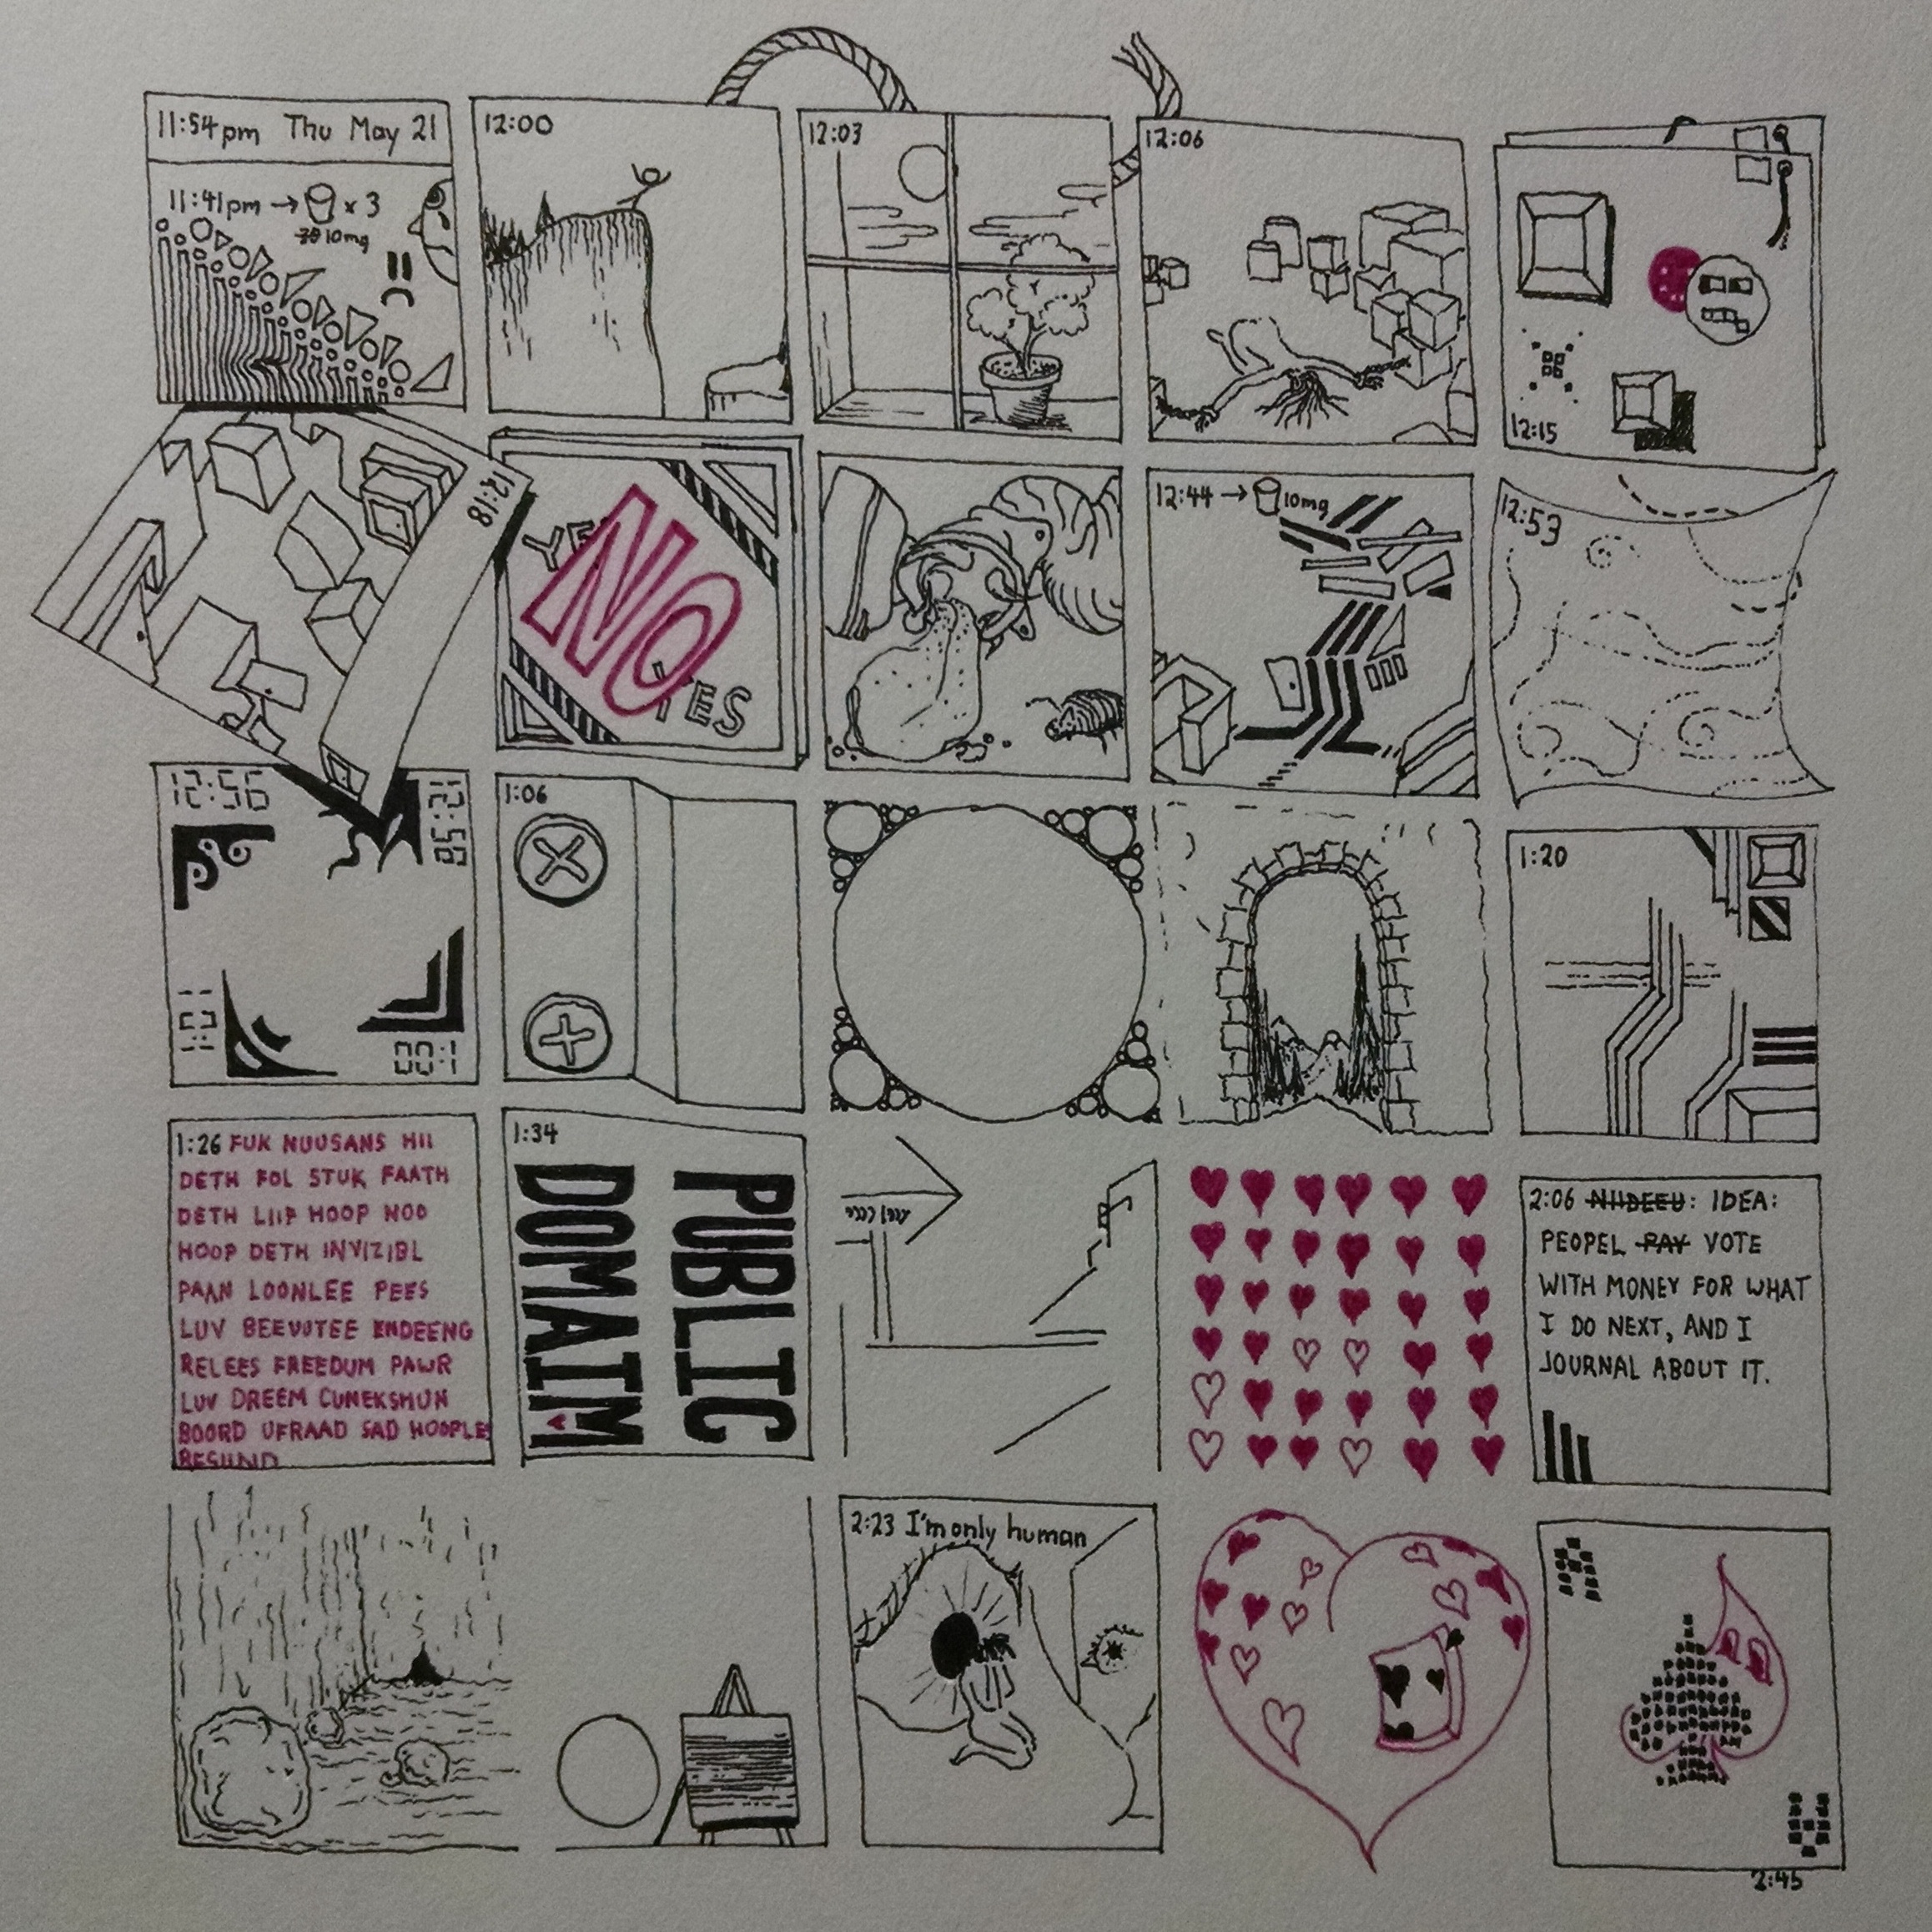 11:54pm Thu May 21
11:41pm → x 3
10mg
12:00
12:03
12:06
12:15
12:18
YE
NO
YES
12:44 → 10mg
12:53
12:56
12:58
1:00
1:01
1:06
1:20
1:26 FUK NUUSANS HII
DETH FOL STUK FAATH
DETH LIIF HOOP NOO
HOOP DETH INVIZIBL
PAAN LOONLEE PEES
LUV BEEVUTEE ENDEENG
RELEES FREEDUM PAWR
LUV DREEM CUNEKSHUN
BOORD UFRAAD SAD HOOPLES
1:34
PUBLIC
DOMAIM
A
2:06 NIIDEEU: IDEA:
PEOPEL PAY VOTE
WITH MONEY FOR WHAT
I DO NEXT, AND I
JOURNAL ABOUT IT.
2:23 I'm only human
2:45